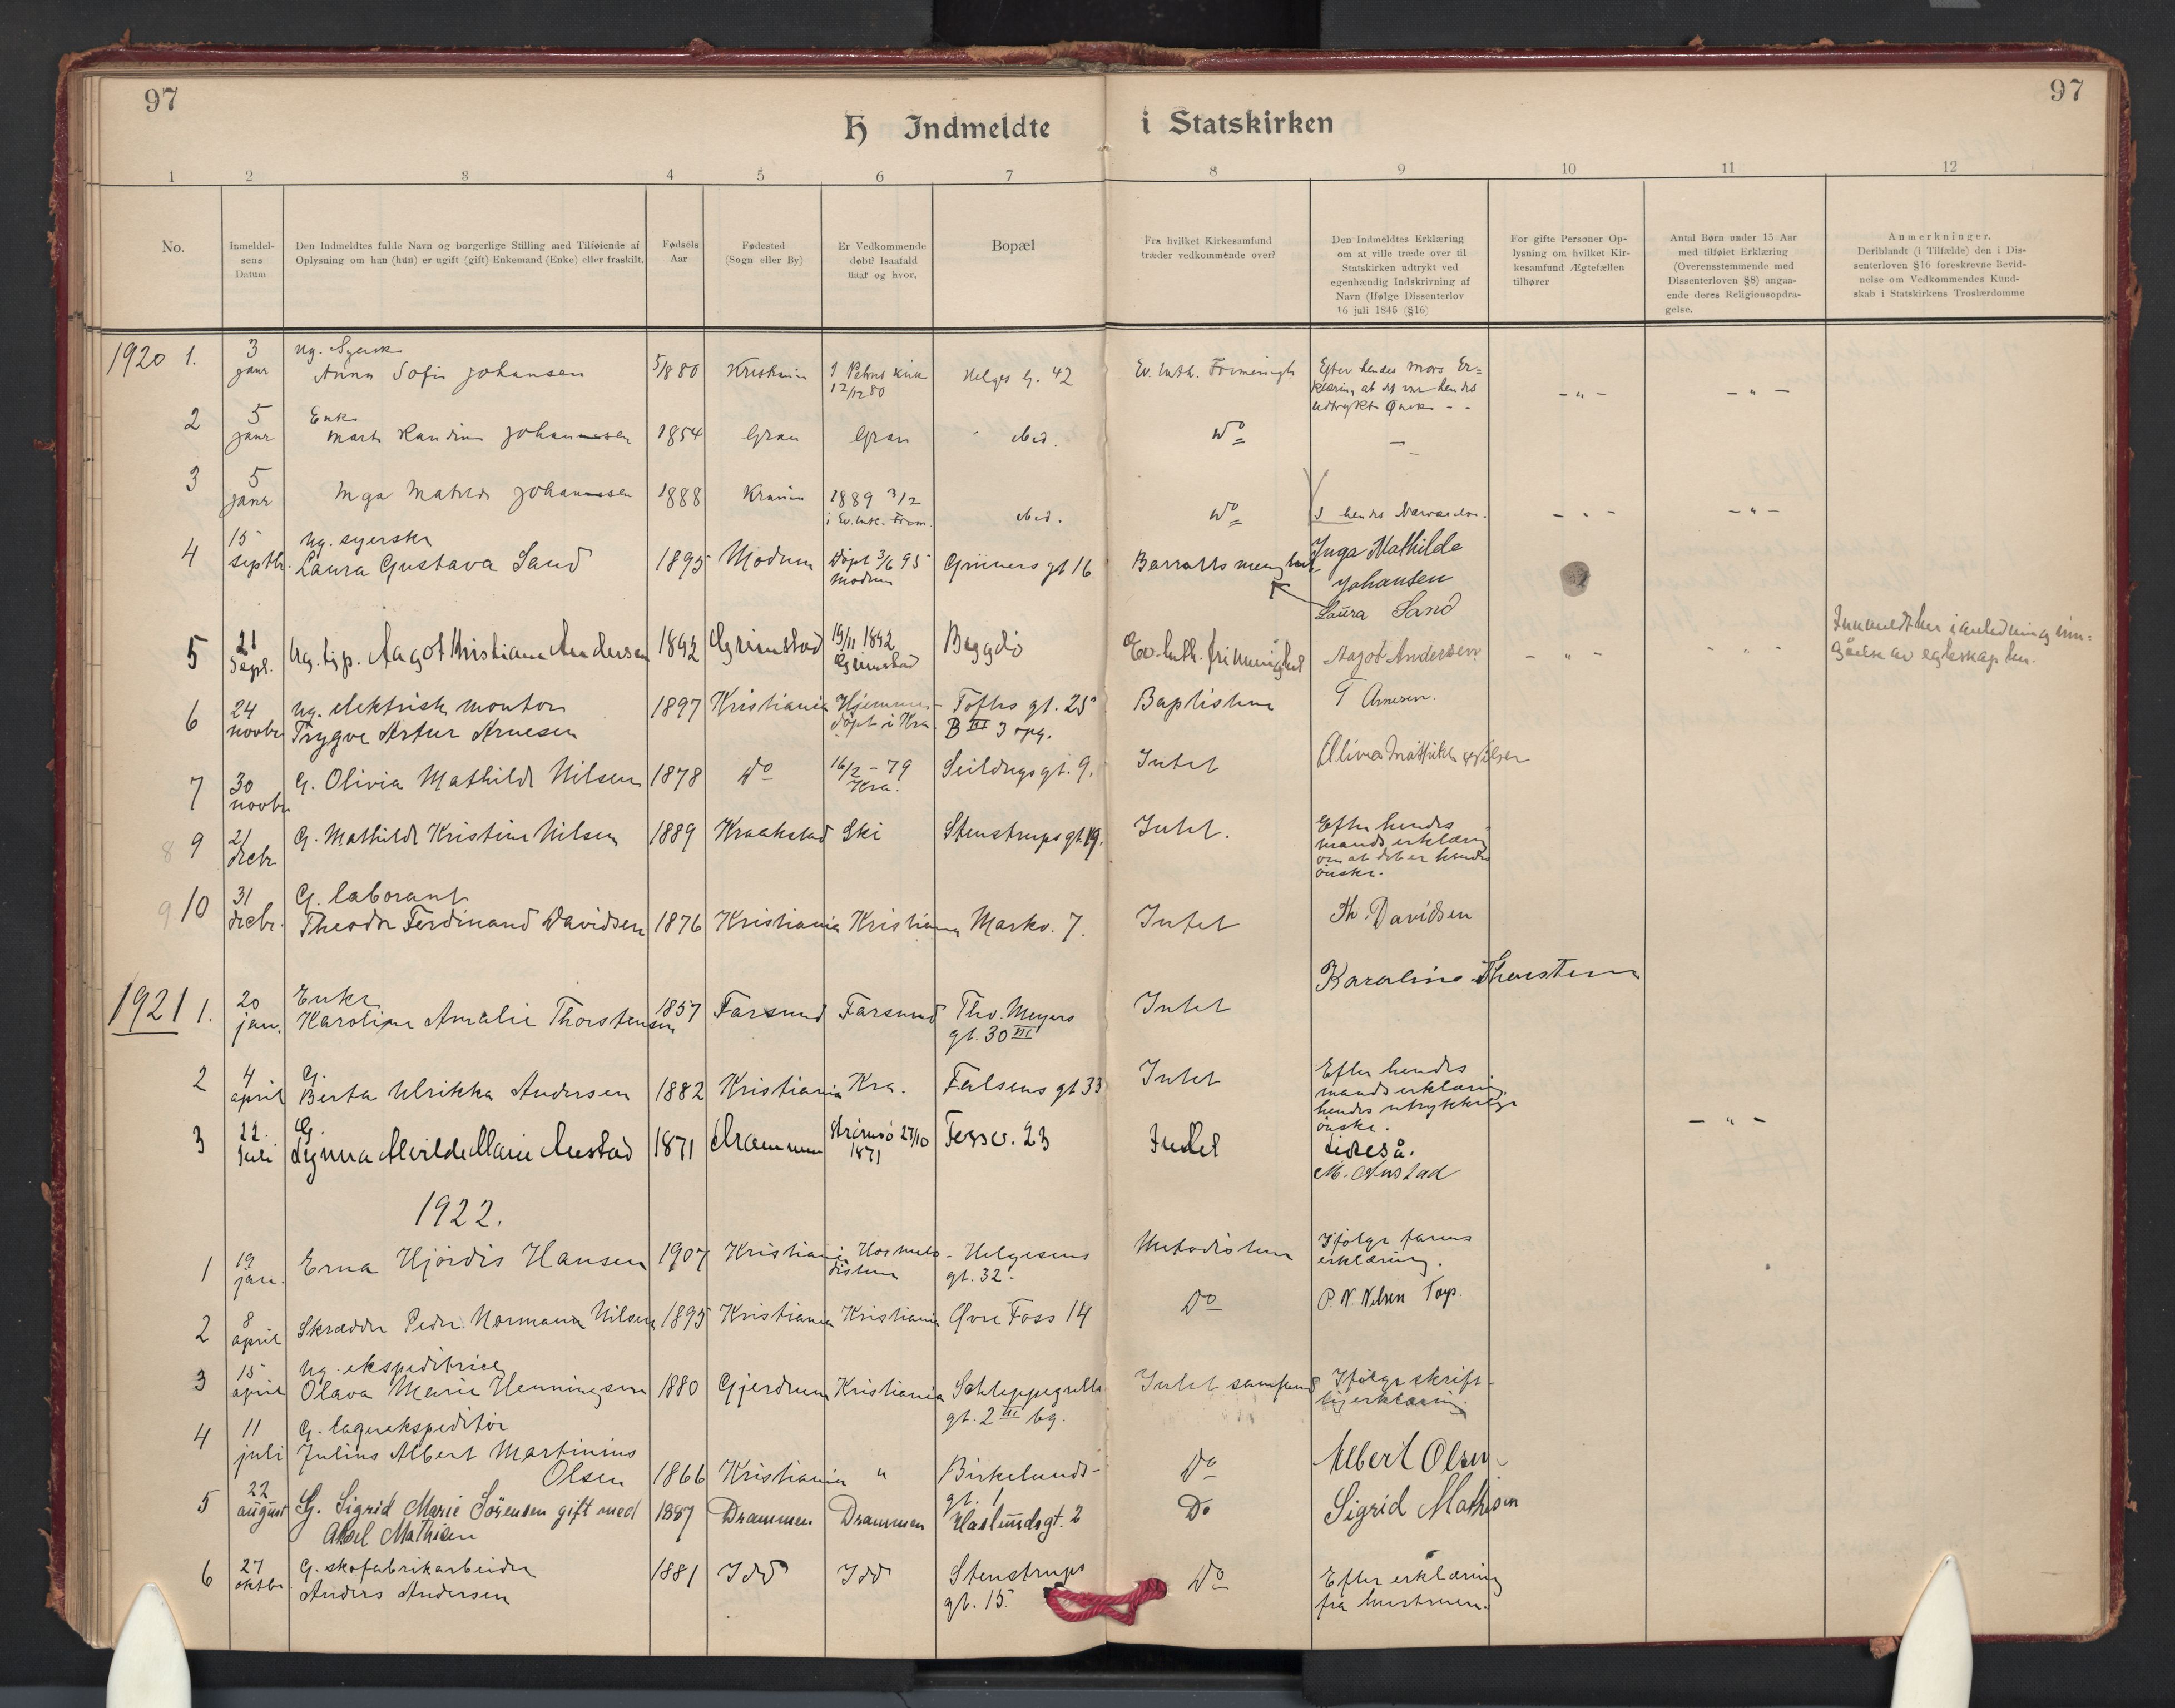 97
97
H Indmeldte i Statskirken
1 2 3 4 5 6 7 8 9 10 11 12
No.
Inmeldelsens Datum
Den Indmeldtes fulde Navn og borgerlige Stilling med Tilføiende af
Oplysning om han (hun) er ugift (gift) Enkemand (Enke) eller fraskilt.
Fødsels Aar
Fødested
(Sogn eller By)
Er Vedkommende
døbt? Isaafald
naar og hvor.
Bopæl
Fra hvilket Kirkesamfund
træder vedkommende over?
Den Indmeldtes Erklæring
om at ville træde over til
Statskirken udtrykt ved
egenhændig Indskrivning af
Navn (Ifølge Dissenterlov
16 juli 1845 (§16)
For gifte Personer Op-
lysning om hvilket Kir-
kesamfund Ægtefællen
tilhører
Antal Børn under 15 Aar
med tilføiet Erklæring
(Overensstemmende med
Dissenterloven §8) angaa-
ende deres Religionsopdra-
gelse.
Anmerkninger.
Deriblandt (i Tilfælde) den i Dis-
senterloven §16 foreskrevne Bevid-
nelse om Vedkommendes Kund-
skab i Statskirkens Troslærdomme
1920 1. 3 janr Ug. Syersk
Anna Sofie Johansen 5/8 80 Kristiania I Petrus kirk 12/12 80 Helges g. 42 Ev. luth. Frimenigh. Efter hendes mors Er=
klæring at det var hendes
udtrykte Ønske - -
2 5 janr Enke
Marte Randine Johannesen 1854 Gran Gran ibid. Do
3 5 janr Inga Matilde Johannesen 1888 Krania 1889 3/2 i Ev. luth. Frim. ibid. Do I hendes Nærværelse.
Inga Mathilde
Johansen
4 15 septb. Ug. syerske
Laura Gustava Sand 1895 Modum Døpt 3/6 95 Modum Grüners gt 16 Barratts menighet
Laura Sand
5 21 Sept. Ug. tjp. Aagot Kristiane Andersen 1892 Grimstad 19/11 1892 Grimstad Bygdø Ev. luth. frimenighet Aagot Andersen
Innmeldt her i anledning inn=
gåelse av egteskap her.
6 24 novbr Ug. elektrisk montør
Trygve Artur Arnesen 1897 Kristiania Hjemme-
døpt i Kra. Toftes gt. 25 B III 3 opg. Baptistene T Arnesen.
7 30 novbr G. Olivia Mathilde Nilsen 1878 Do 16/2 - 79 Kra. Seildugsgt. 9. Intet Olivia Mathilde Nilsen
8 9 21 decbr G. Mathilde Kristine Nilsen 1889 Kraakstad Ski Stenstrupsgt. 19. Intet. Efter hendes
mands erklæring
om at det er hendes
ønske.
9 10 31 decbr. G. laborant
Theodor Ferdinand Davidsen 1876 Kristiania Kristiania Markv. 7. Intet Th. Davidsen
1921 1. 20 jan. Enke
Karoline Amalie Thorstensen 1857 Farsund Farsund Thv. Meyers
gt. 30 III Intet Karoline Thorstensen
2 4 april G.
Berta Ulrikka Andersen 1882 Kristiania Kra. Falsens gt 33 Intet Efter hendes
mands erklæring
hendes utrykkelige
ønske.
3 22. Juli G.
Alvilde Marie Austad 1871 Drammen Strømsø 27/10 1871 Fossv. 23 Intet
M. Austad
1922.
1 19 jan. Erna Hjördis Hansen 1907 Kristiania Hos meto-
distene Helgesens
gt. 32. Metodistene Ifølge farens
erklæring.
2 8 april Skrædder Peder Normann Nilsen 1895 Kristiania Kristiania Øvre Foss 14 Do P. N. Nilsen
3 15 april Ug. ekspeditrice
Olava Marie Henningsen 1880 Gjerdrum Kristiania Schleppegrells
gt. 2 III bg. Intet samfund Ifølge skrift-
lig erklæring
4 11 juli G. lagerekspeditør
Julius Albert Martinius
Olsen 1866 Kristiania " Birkelunds-
gt. 1 Do Albert Olsen
5 22 august G. Sigrid Marie Sörensen gift med
Aksel Mathisen 1887 Drammen Drammen Haslundsgt. 2 Do Sigrid Mathisen
6 27 oktbr. G. skofabrikarbeider
Anders Andersen 1881 Idd Idd Stenstrups
gt. 15 Do Efter erklæring
fra hustruen.